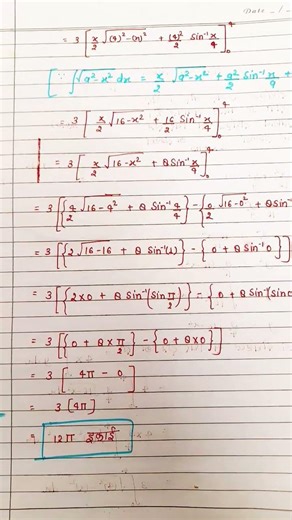 Date / /
= 3 [ x/2 √(4)² - (x)² + (4)²/2 Sin⁻¹ x/4 ]₀⁴
[ ∵ ∫√a²-x² dx = x/2 √a²-x² + a²/2 Sin⁻¹ x/a +
3 [ x/2 √16-x² + 16/2 Sin⁻¹ x/4 ]₀⁴
= 3 [ x/2 √16-x² + 8 Sin⁻¹ x/4 ]₀⁴
= 3 [ { 4/2 √16-4² + 8 Sin⁻¹ 4/4 } - { 0/2 √16-0² + 8 Sin⁻¹
= 3 [ { 2√16-16 + 8 Sin⁻¹(1) } - { 0 + 8 Sin⁻¹ 0 } ]
= 3 [ { 2x0 + 8 Sin⁻¹ (Sin π/2) } - { 0 + 8 Sin⁻¹ (Sin0
= 3 [ { 0 + 8 x π/2 } - { 0 + 8x0 } ]
= 3 [ 4π - 0 ]
= 3 [4π]
= 12π इकाई